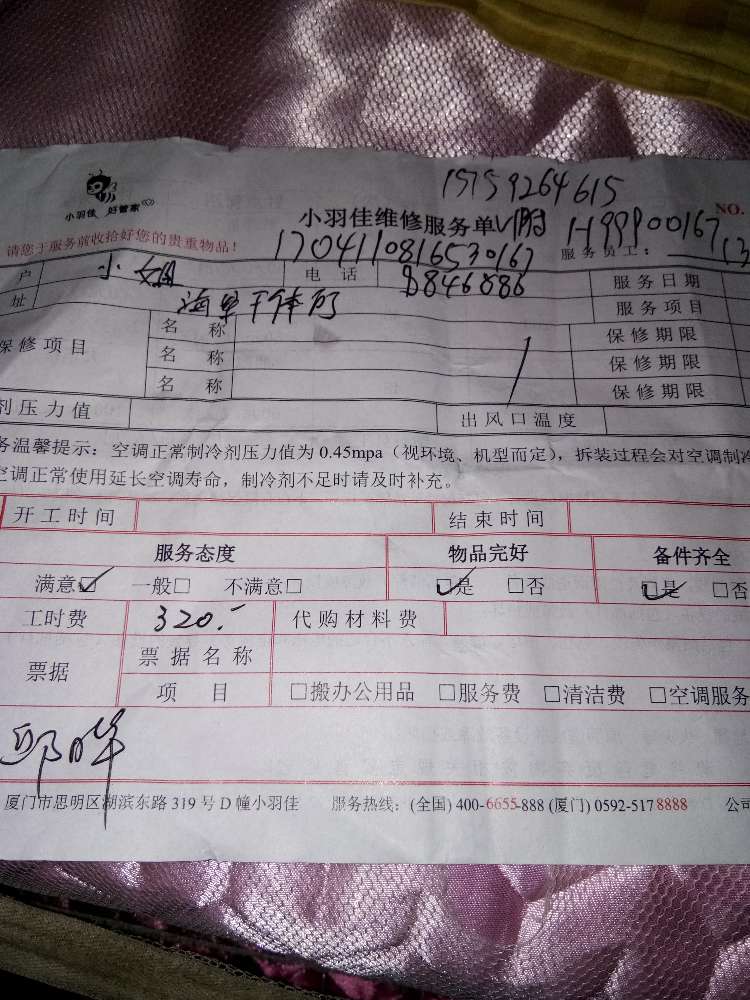 15759264615
小羽佳 好管家
小羽佳维修服务单
NO.
请您于服务前收拾好您的贵重物品！
1704110816530167
H99900167
服务员工：
户 小 电 话 8846886 服务日期
址 海军干休所 服务项目
保修项目 名 称 保修期限
名 称 保修期限
名 称 保修期限
剂压力值 出风口温度
务温馨提示：空调正常制冷剂压力值为 0.45mpa（视环境、机型而定），拆装过程会对空调制冷
空调正常使用延长空调寿命，制冷剂不足时请及时补充。
开工时间 结束时间
服务态度 物品完好 备件齐全
满意☑ 一般□ 不满意□ ☑是 □否 ☑是 □否
工时费 320.- 代购材料费
票据 票据名称
项 目 □搬办公用品 □服务费 □清洁费 □空调服务
厦门市思明区湖滨东路 319 号 D 幢小羽佳 服务热线：(全国) 400-6655-888 (厦门) 0592-517 8888 公司